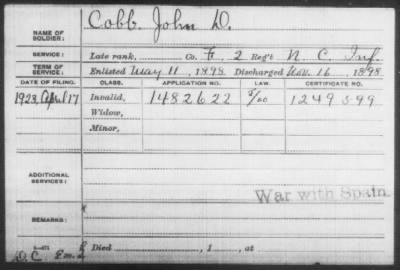 NAME OF SOLDIER: Cobb, John D.
SERVICE: Late rank, Co. F, 2 Reg't N. C. Inf.
TERM OF SERVICE: Enlisted May 11, 1898, Discharged Nov. 16, 1898
DATE OF FILING. CLASS. APPLICATION NO. LAW. CERTIFICATE NO.
1923, April 17 Invalid, 1482622 1249599
Widow,
Minor,
ADDITIONAL SERVICES:
War with Spain
REMARKS:
Died , 1 , at